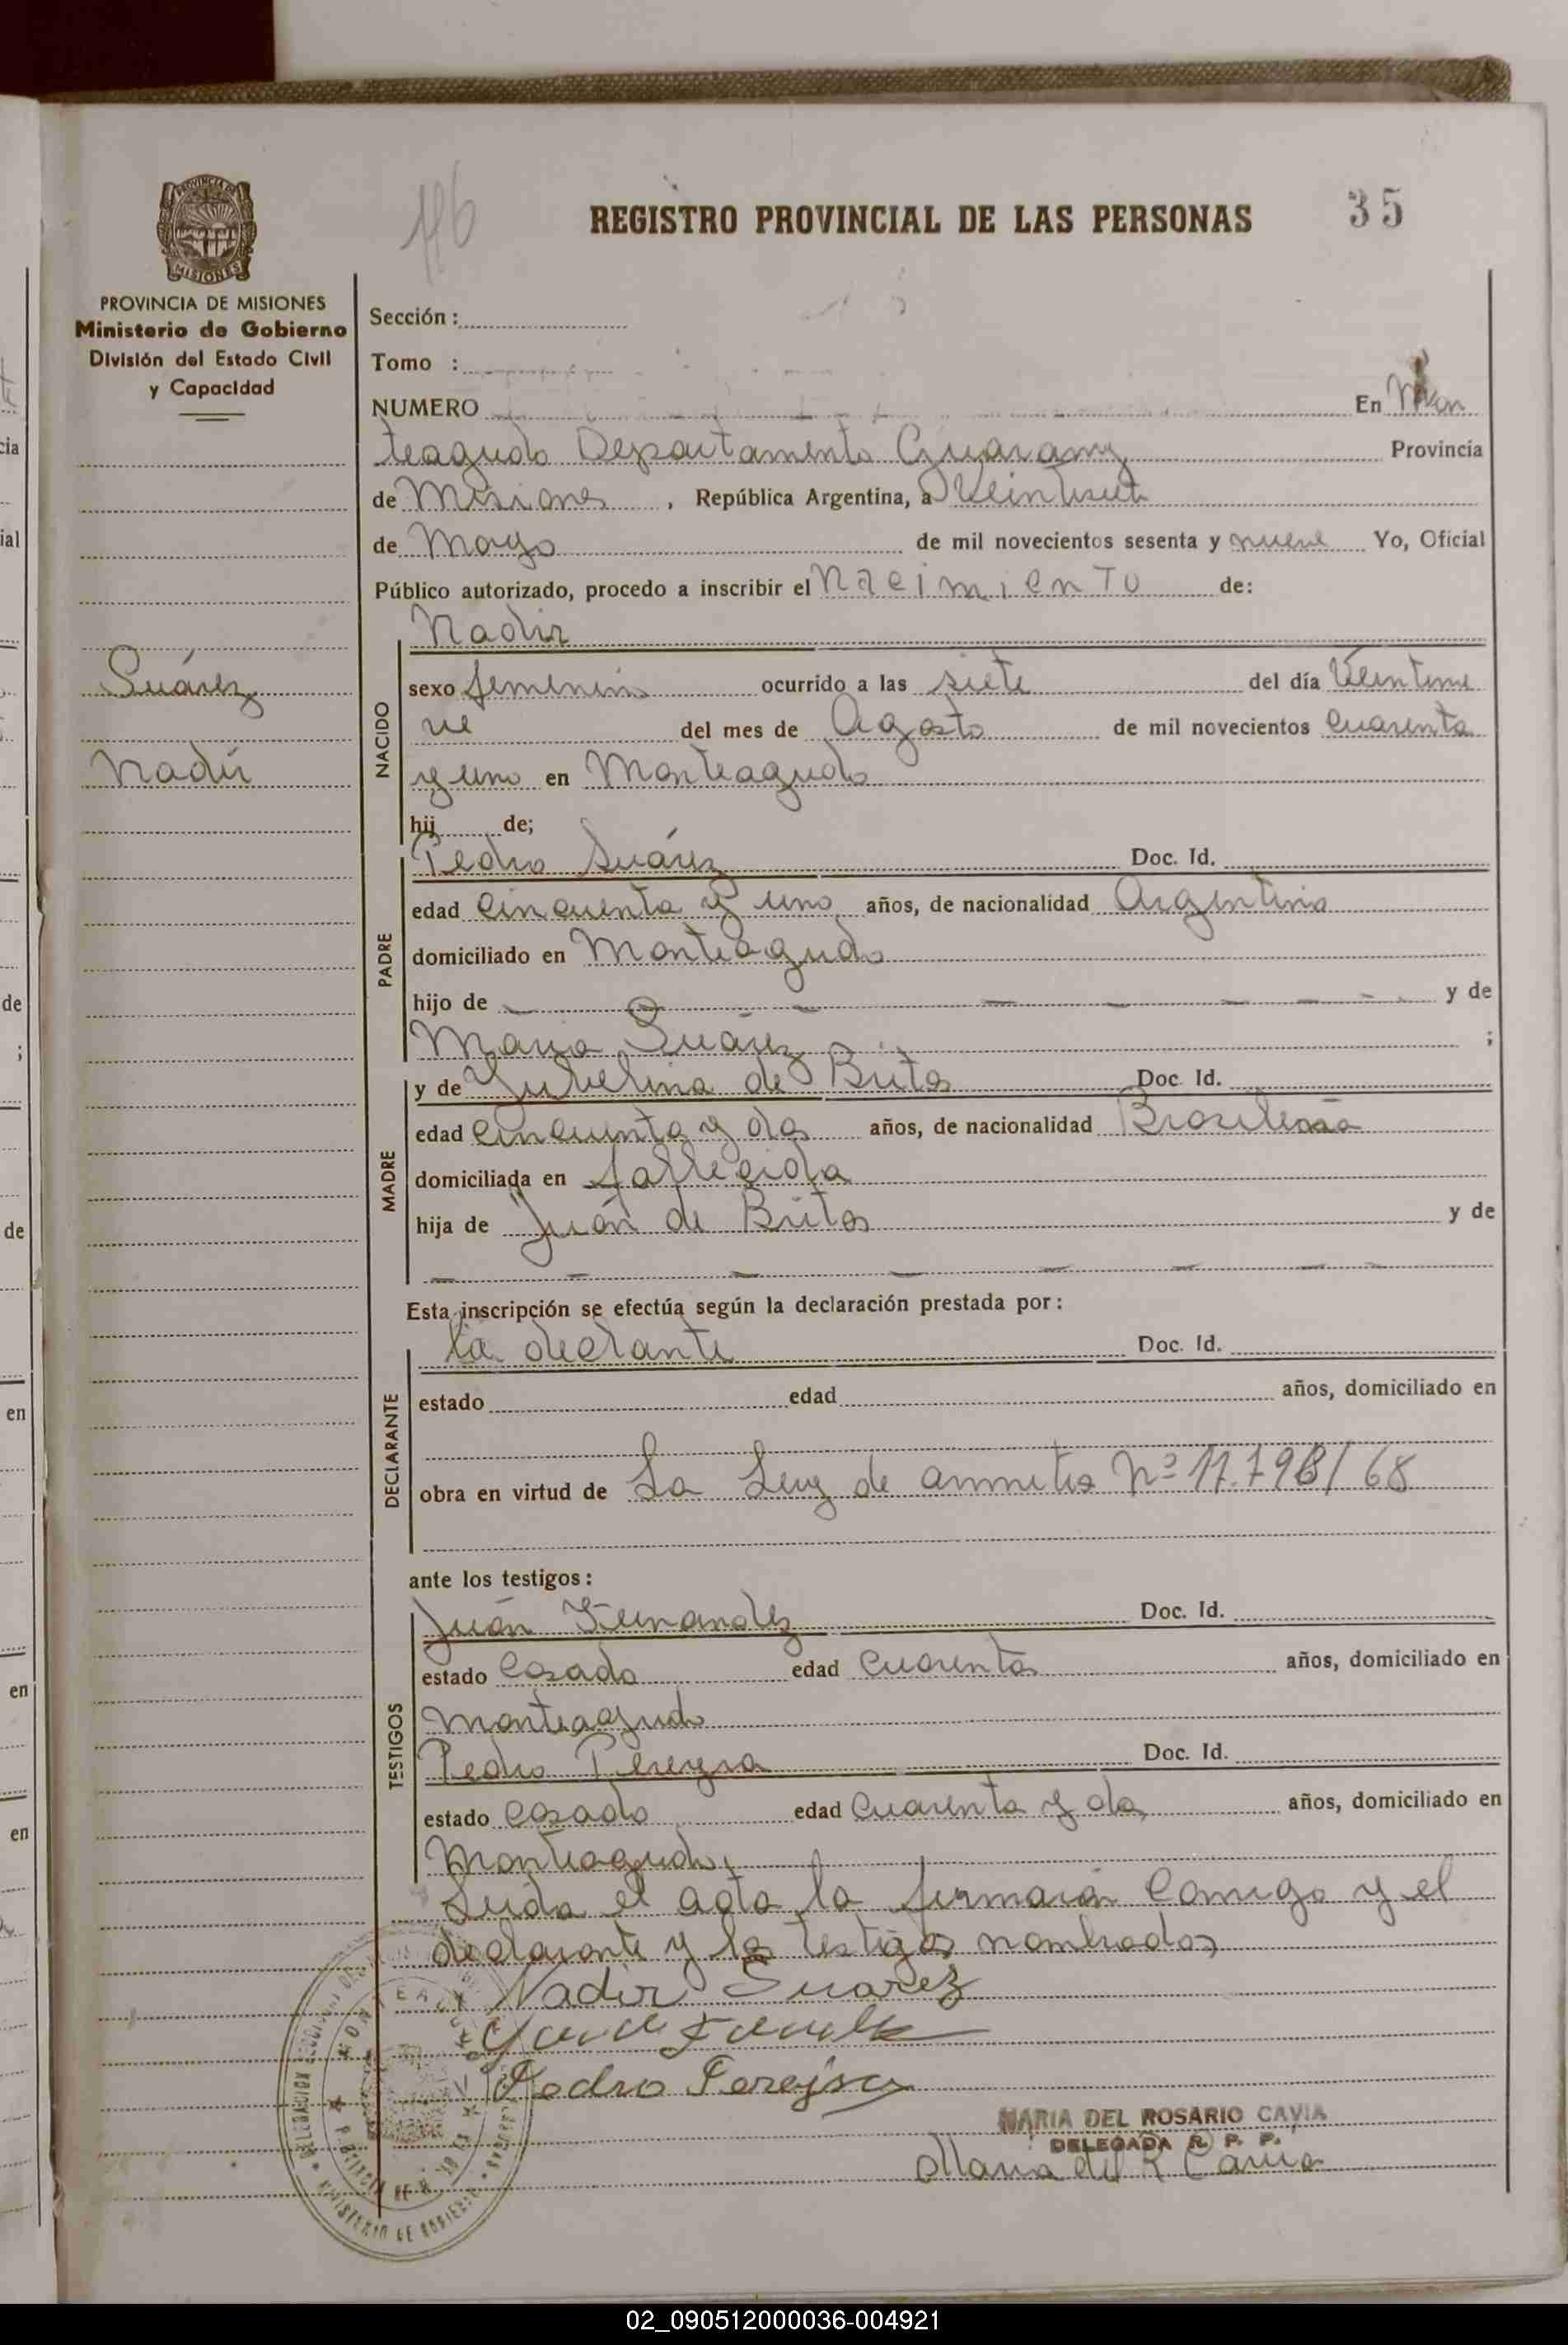 116
REGISTRO PROVINCIAL DE LAS PERSONAS 35
PROVINCIA DE MISIONES
Ministerio de Gobierno
División del Estado Civil
y Capacidad
Sección :
Tomo :
NUMERO En Mon
teagudo Departamento Guarany Provincia
de Misiones , República Argentina, a Veintisiete
de Mayo de mil novecientos sesenta y nueve Yo, Oficial
Público autorizado, procedo a inscribir el Nacimiento de:
Suárez
Nadir
NACIDO
Nadir
sexo femenino ocurrido a las siete del día Veintinue
ve del mes de Agosto de mil novecientos cuarenta
y uno en Monteagudo
hij de;
PADRE
Pedro Suárez Doc. Id.
edad cincuenta y uno años, de nacionalidad Argentino
domiciliado en Monteagudo
hijo de y de
Maria Suárez ;
MADRE
y de Jubelina de Brito Doc. Id.
edad cincuenta y dos años, de nacionalidad Brasileña
domiciliada en fallecida
hija de Juán de Brito y de
Esta inscripción se efectúa según la declaración prestada por :
DECLARANTE
la declante Doc. Id.
estado edad años, domiciliado en
obra en virtud de La Ley de amnetia Nº 17.798/68
ante los testigos :
TESTIGOS
Juán Fernandez Doc. Id.
estado Casado edad cuarenta años, domiciliado en
Monteagudo
Pedro Pereyra Doc. Id.
estado Casado edad cuarenta y dos años, domiciliado en
Monteagudo,
Leida el acta la firmarón Comigo y el
declarante y los testigos nombrados
Nadir Suarez
Pedro Pereyra
MARIA DEL ROSARIO CAVIA
DELEGADA R. P. P.
Maria del R Cavia
02_090512000036-004921